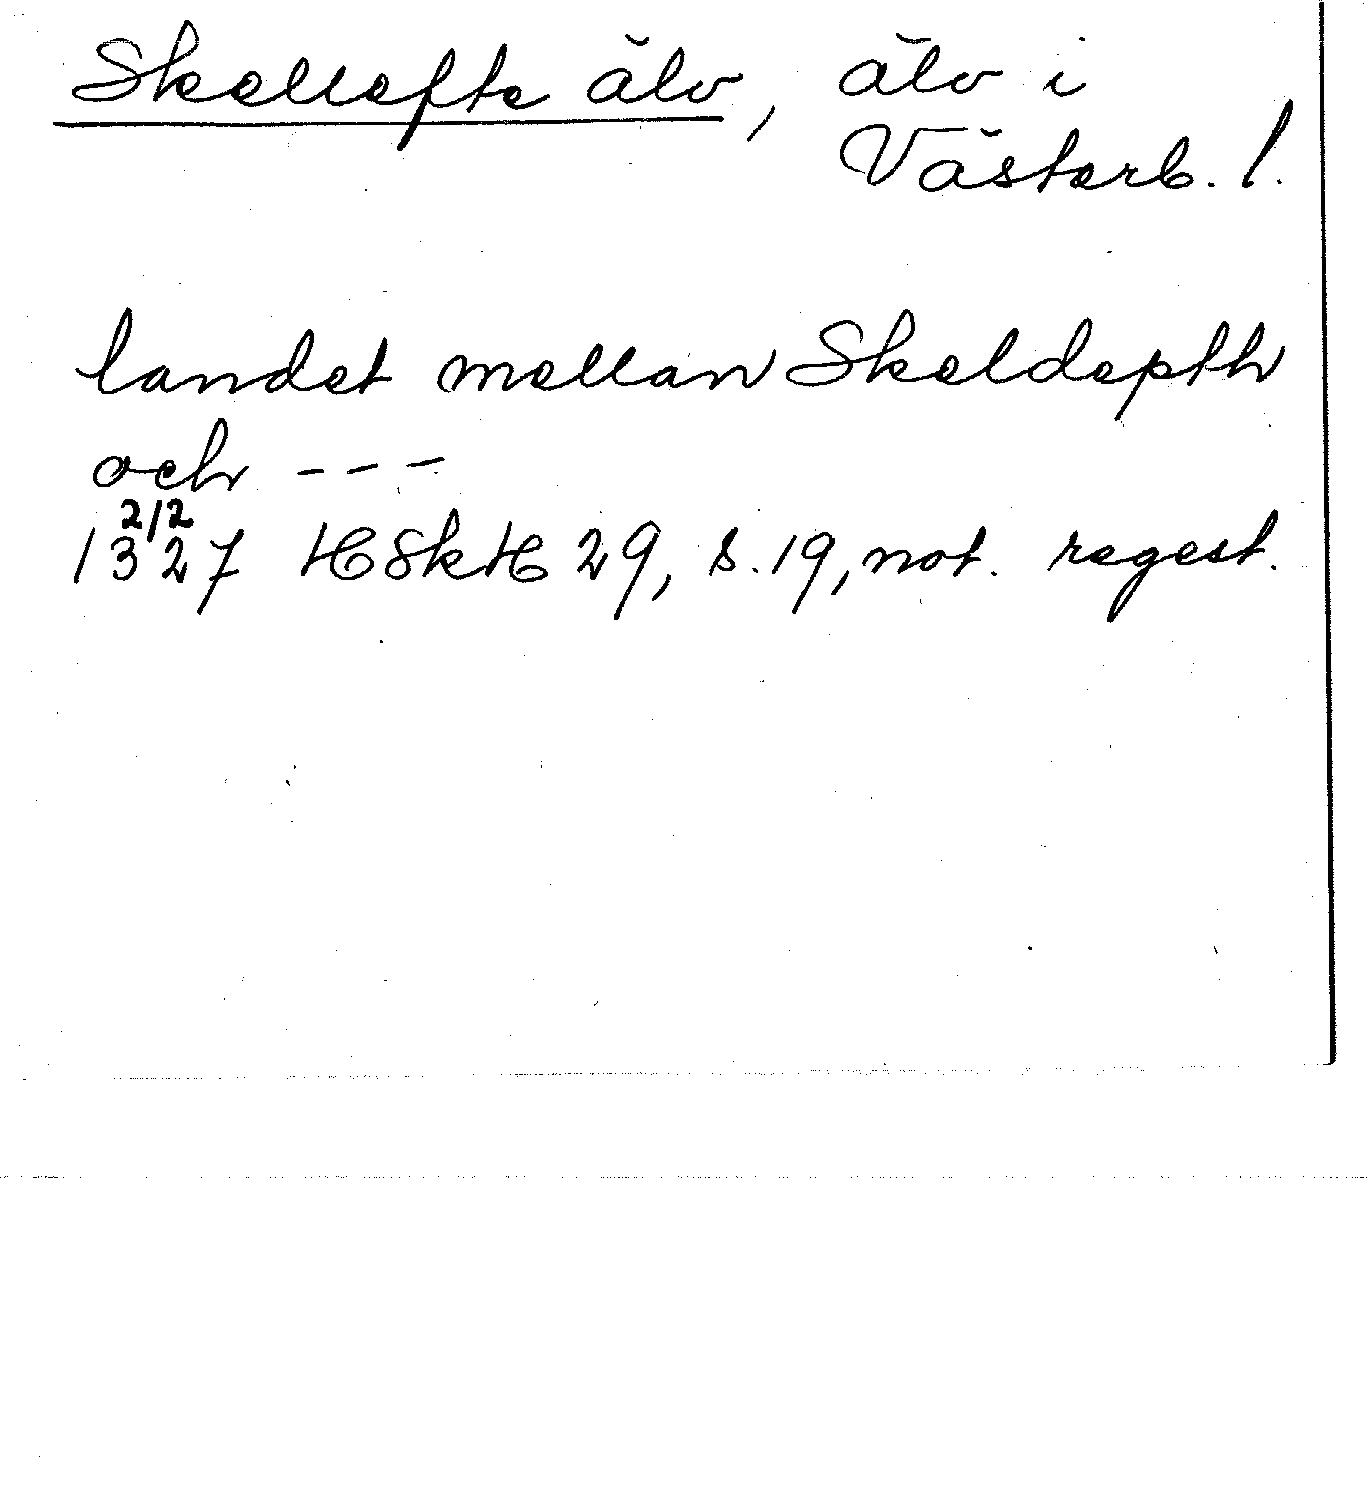 Skellefte älv, älv i
Västerb. l.
landet mellan Skeldepth
och ---
2/2
1327 HSkH 29, s. 19, not. regest.